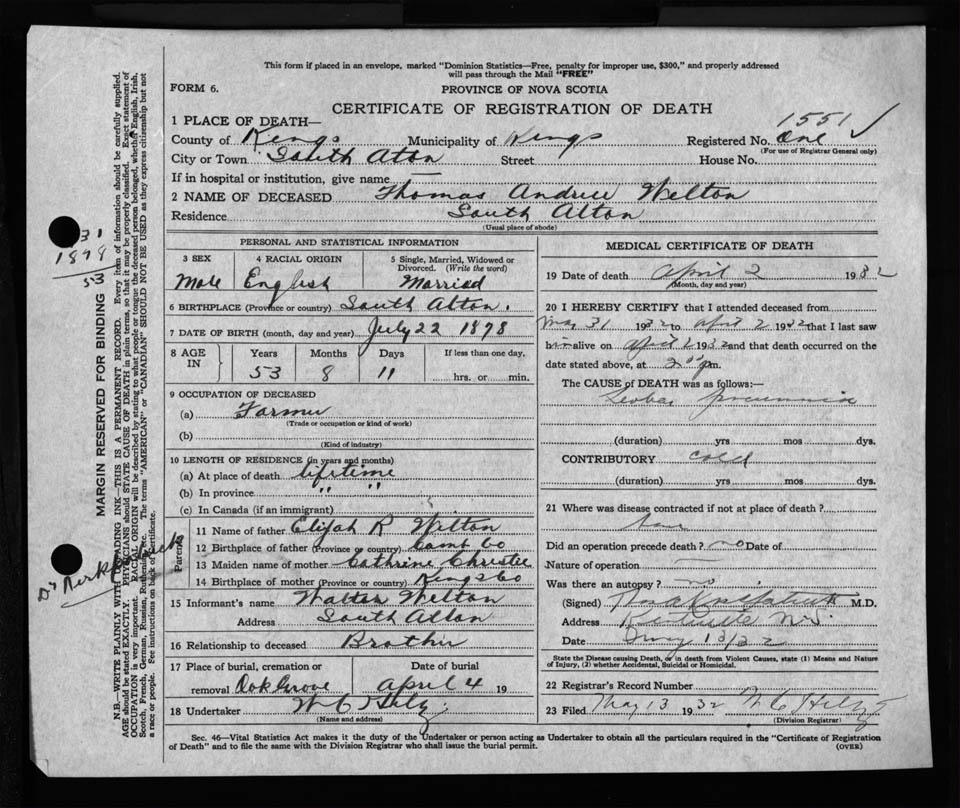 This form if placed in an envelope, marked "Dominion Statistics—Free, penalty for improper use, $300," and properly addressed
will pass through the Mail "FREE"
FORM 6.
PROVINCE OF NOVA SCOTIA
CERTIFICATE OF REGISTRATION OF DEATH
1551 ✓
1 PLACE OF DEATH—
County of Kings Municipality of Kings Registered No. One
(For use of Registrar General only)
City or Town South Aton Street House No.
If in hospital or institution, give name —
2 NAME OF DECEASED Thomas Andrew Welton
Residence South Alton
(Usual place of abode)
PERSONAL AND STATISTICAL INFORMATION
3 SEX 4 RACIAL ORIGIN 5 Single, Married, Widowed or Divorced. (Write the word)
Male English Married
6 BIRTHPLACE (Province or country) South Alton.
7 DATE OF BIRTH (month, day and year) July 22 1878
8 AGE IN Years Months Days If less than one day,
53 8 11 hrs. or min.
9 OCCUPATION OF DECEASED
(a) Farmer
(Trade or occupation or kind of work)
(b)
(Kind of industry)
10 LENGTH OF RESIDENCE (in years and months)
(a) At place of death lifetime
(b) In province " "
(c) In Canada (if an immigrant)
Parents
11 Name of father Elijah R Welton
12 Birthplace of father (Province or country)
13 Maiden name of mother Cathrine Christie
14 Birthplace of mother (Province or country) Kings Co
15 Informant's name Walter Welton
Address South Alton
16 Relationship to deceased Brother
17 Place of burial, cremation or removal Oak Grove
Date of burial April 4 19
18 Undertaker W C
(Name and address)
MEDICAL CERTIFICATE OF DEATH
19 Date of death April 2 1932
(Month, day and year)
20 I HEREBY CERTIFY that I attended deceased from
Mar 31 1932 to April 2 1932 that I last saw
him alive on April 2 1932 and that death occurred on the
date stated above, at 2:00 p m.
The CAUSE of DEATH was as follows:—
Lobar pneumonia
(duration) yrs mos dys.
CONTRIBUTORY cold
(duration) yrs mos dys.
21 Where was disease contracted if not at place of death?
Did an operation precede death? no Date of
Nature of operation —
Was there an autopsy? no
(Signed) M.D.
Address Kentville N.S.
Date May 13/32
State the Disease causing Death, or in death from Violent Causes, state (1) Means and Nature
of Injury, (2) whether Accidental, Suicidal or Homicidal.
22 Registrar's Record Number
23 Filed May 13 1932
(Division Registrar)
Sec. 46—Vital Statistics Act makes it the duty of the Undertaker or person acting as Undertaker to obtain all the particulars required in the "Certificate of Registration
of Death" and to file the same with the Division Registrar who shall issue the burial permit.
(OVER)
31
1878
53
MARGIN RESERVED FOR BINDING
N.B.—WRITE PLAINLY WITH UNFADING INK—THIS IS A PERMANENT RECORD. Every item of information should be carefully supplied.
AGE should be stated EXACTLY. PHYSICIANS should STATE CAUSE OF DEATH in plain terms, so that it may be properly classified. Exact statement of
OCCUPATION is very important. RACIAL ORIGIN will be described by stating to what people or tongue the deceased person belonged, whether English, Irish,
Scotch, French, German, Russian, Ruthenian, etc. The terms "AMERICAN" or "CANADIAN" SHOULD NOT BE USED as they express citizenship but not
a race or people. See instructions on back of certificate.